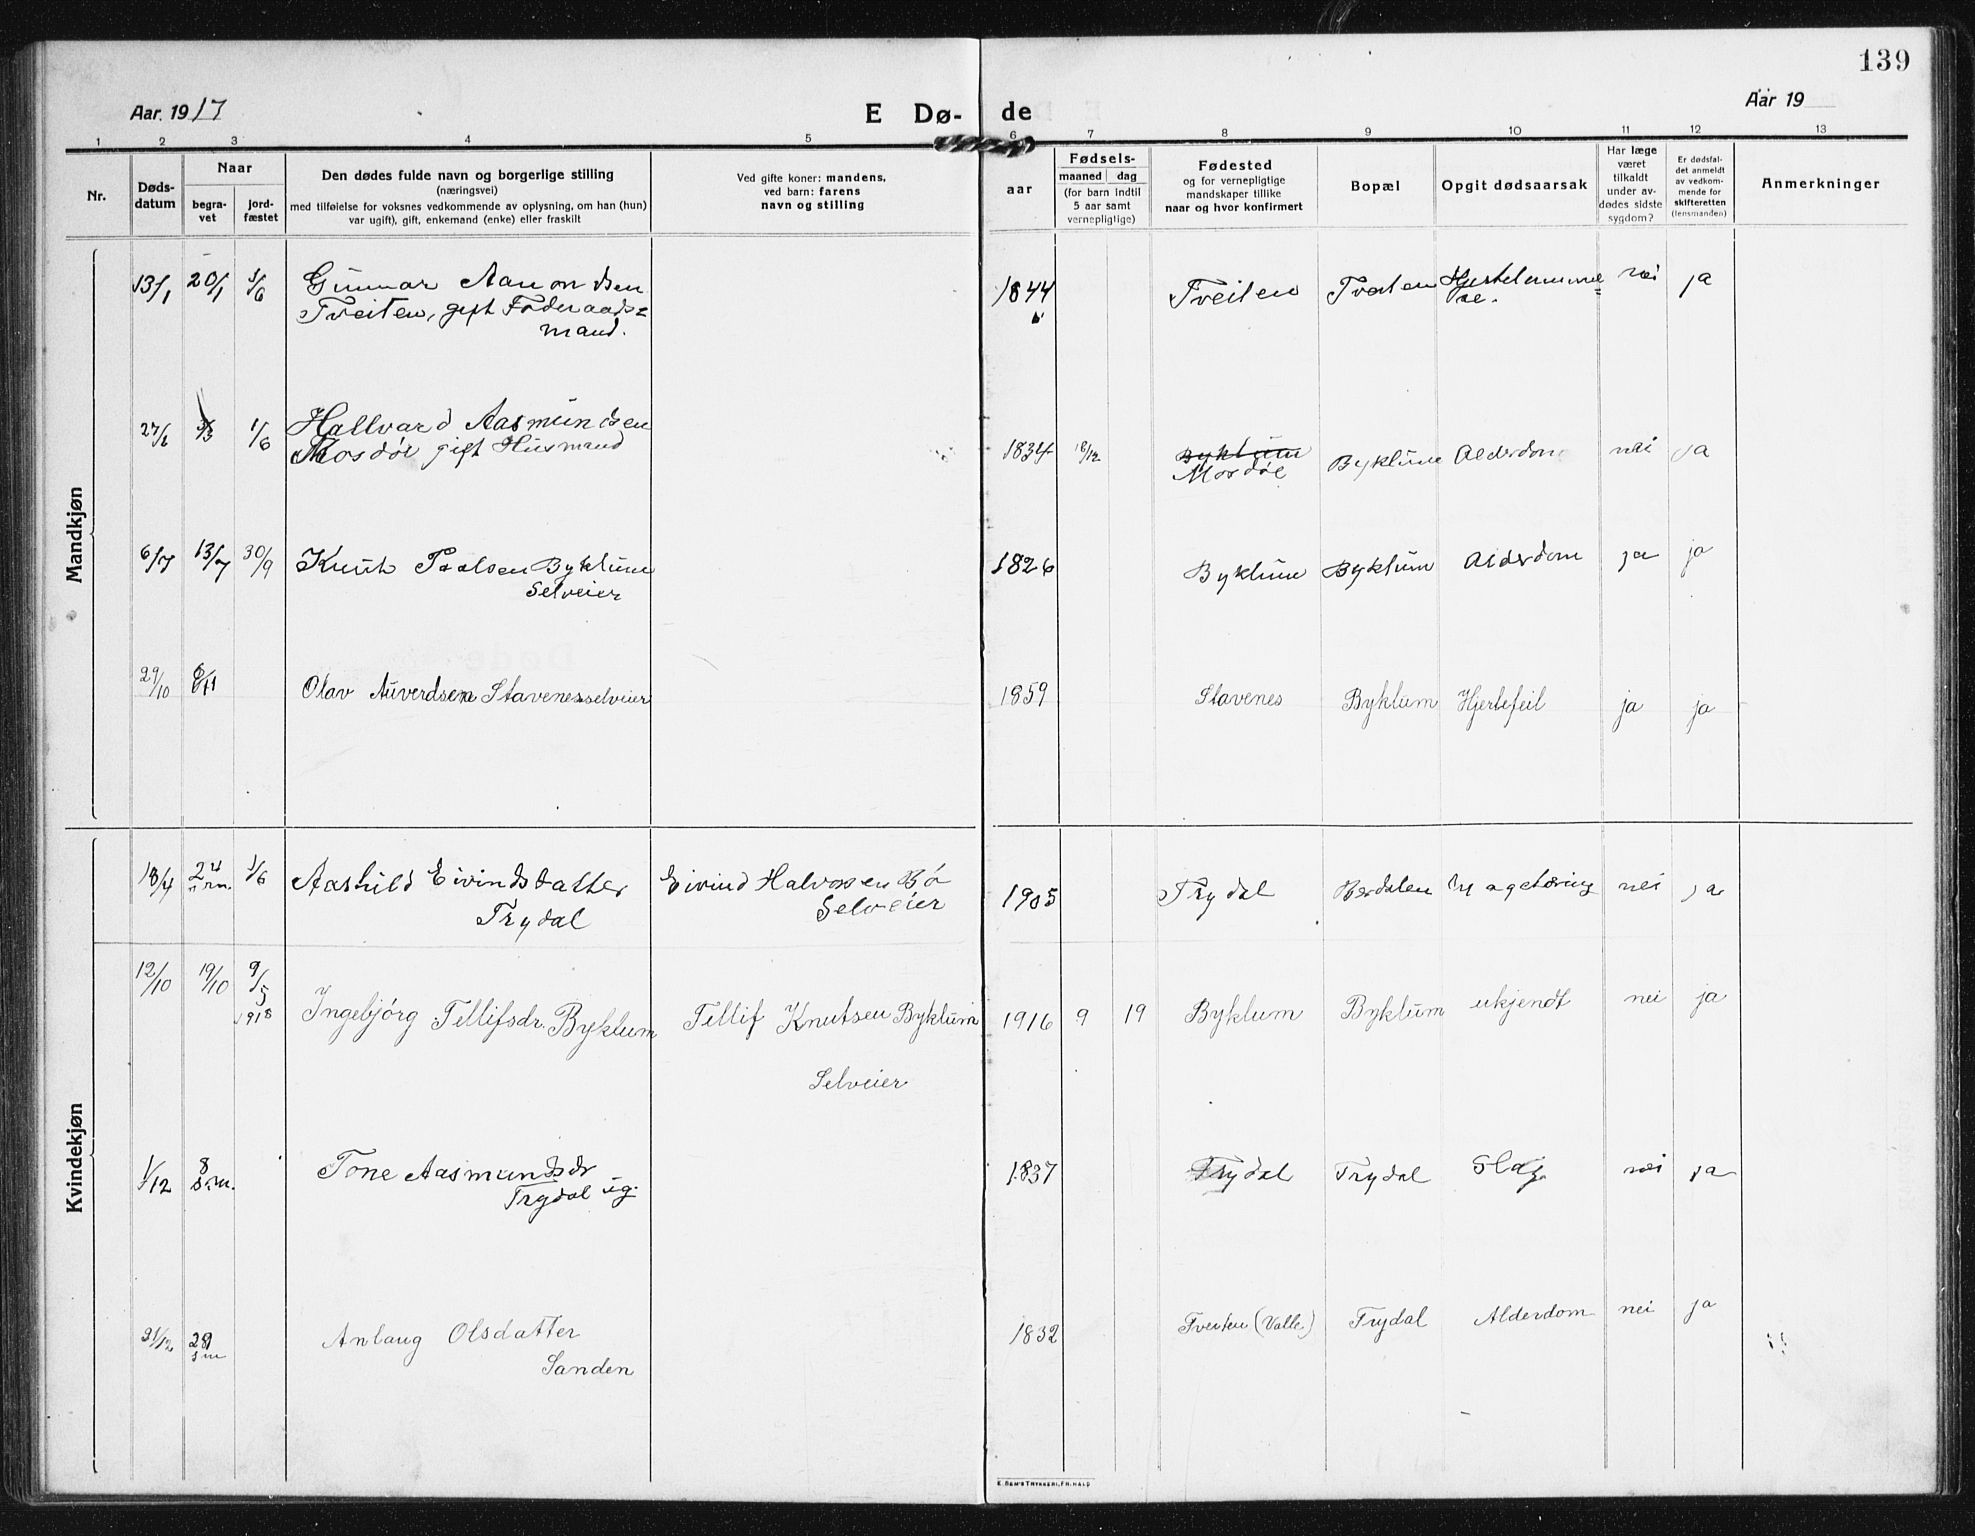 139
Aar 1917
E Dø-
de
Aar 19
1 2 3 4 5 6 7 8 9 10 11 12 13
Nr.
Døds-
datum
Naar
begra-
vet
jord-
fæstet
Den dødes fulde navn og borgerlige stilling
(næringsvei)
med tilføielse for voksnes vedkommende av oplysning, om han (hun)
var ugift), gift, enkemand (enke) eller fraskilt
Ved gifte koner: mandens,
ved barn: farens
navn og stilling
aar
Fødsels-
maaned dag
(for barn indtil
5 aar samt
vernepligtige)
Fødested
og for vernepligtige
mandskaper tillike
naar og hvor konfirmert
Bopæl
Opgit dødsaarsak
Har læge
været
tilkaldt
under av-
dødes sidste
sygdom?
Er dødsfal-
det anmeldt
av vedkom-
mende for
skifteretten
(lensmanden)
Anmerkninger
Mandkjøn
13/1 20/1 3/6 Gunnar Aanondsen
Tveiten, gift Føderaads=
mand.
1844 Tveiten Tveiten nei ja
27/2 1/6 Hallvard Aasmundsen
Mosdøl gift Husmand
1834 18/12 Byklum
Mosdøl
Byklum Alderdom nei ja
6/7 13/7 30/9 Knut Paalsen Byklum
Selveier
1826 Byklum Byklum Alderdom ja ja
29/10 Olav Auverdsen Stavenes selveier
1859 Stavenes Byklum Hjertefeil ja ja
Kvindekjøn
18/4 24 1/6 Aashild Eivindsdatter
Trydal
Eivind Halvorsen Bö
Selveier
1905 Trydal Berdalen nei ja
12/10 19/10 9/5
1918
Ingebjörg Tellifsdr. Byklum
Tellif Knutsen Byklum
Selveier
1916 9 19 Byklum Byklum ukjendt nei ja
1/12 8 Tone Aasmundsdr
Trydal ug.
1837 Trydal Trydal Slag nei ja
21/12 Anlaug Olsdatter
Sanden
1832 Tveiten (Valle) Trydal Alderdom nei ja
E. SEM'S TRYKKERI, FR.HALD